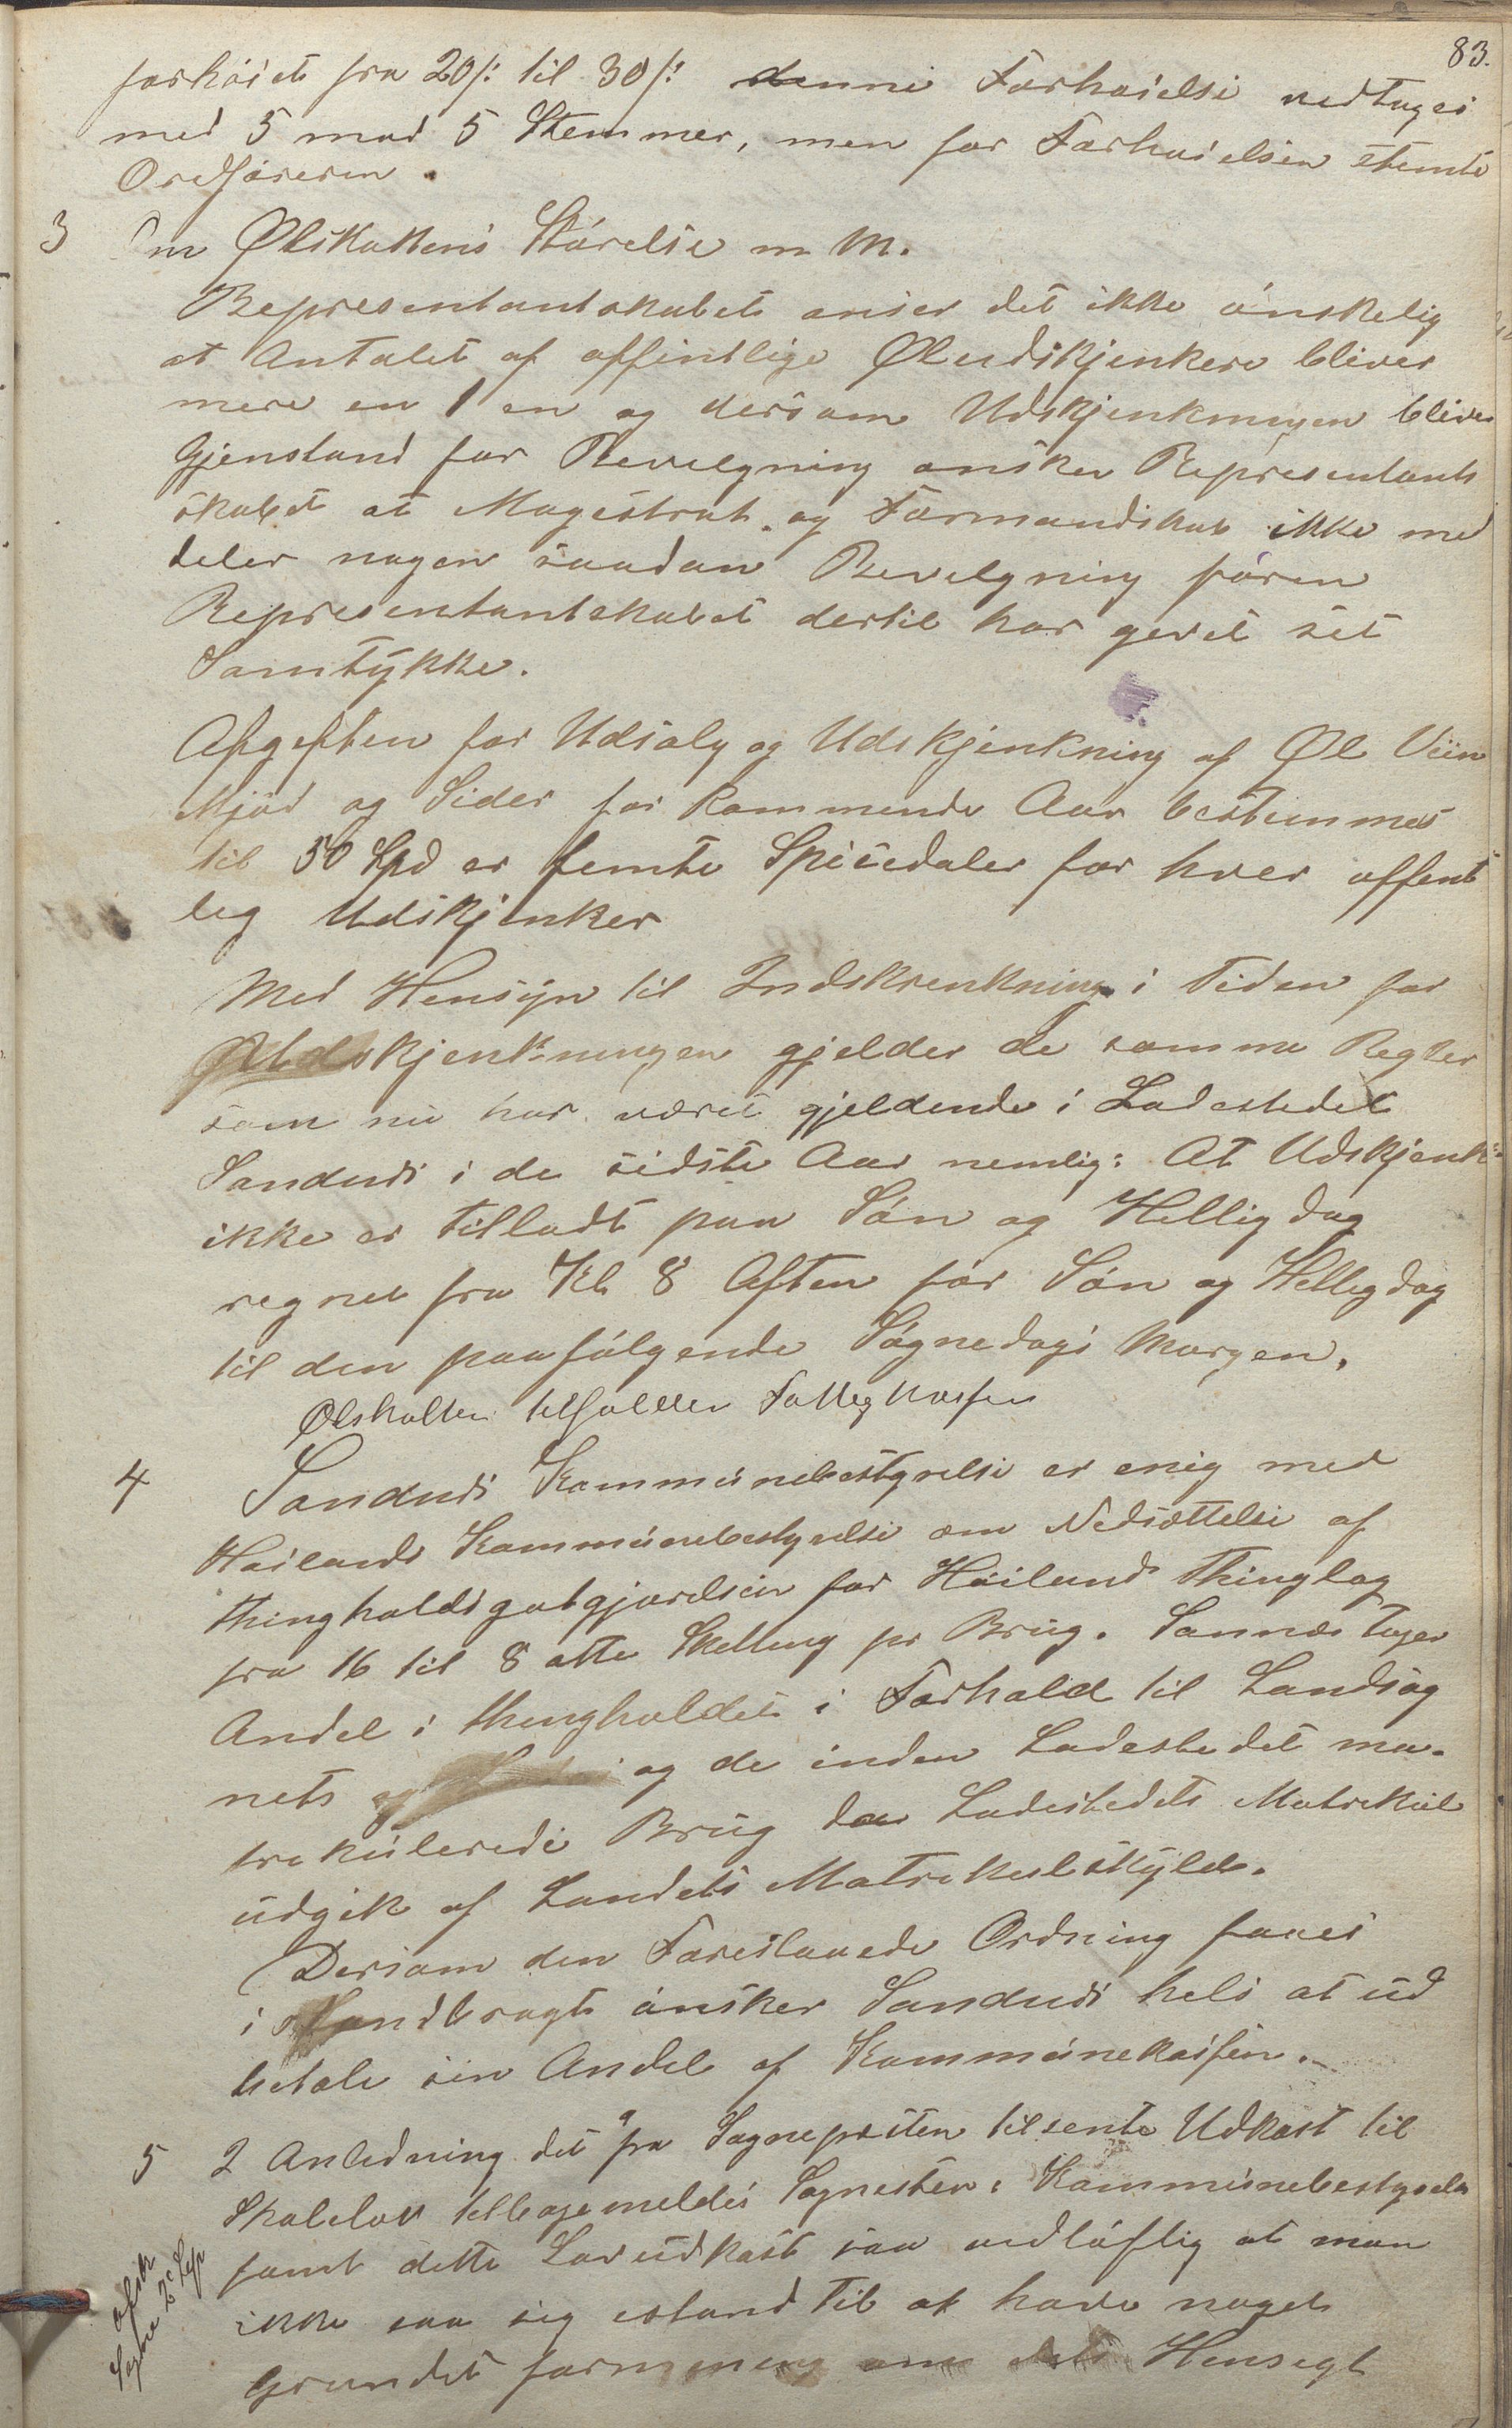 83.
forhöiet fra 20/: til 30/: denne Forhøielse vedtages
med 5 mod 5 Stemmer, men for Forhøielsen stemte
Ordföreren.
3 Om Ølskattens Störelse m M.
Representantskabet anser det ikke önskelig
at Antalet af offintlige Øludskjenkere bliver
mere en 1 en og dersom Udskjenkningen bliver
Gjenstand for Bevelgning ønsker Representant
skabet at Magestrat og Formandskab ikke med
deler nogen saadan Bevelgning fören
Representantskabet dertil har gevet set
Samtÿkke.
Afgeften for Udsalg og Udskjenkning af Øl Viin
Mjöd og Sider for kommende Aar bestemmes
til 50 Spd er femte Speciedaler for hver offent
leg Udskjenker
Med Hensyn til Indskrenkning i Tiden for
Øludskjenkningen gjelder de samme Regler
som nu har været gjeldende i Ladestedet
Sandnds i de sidste Aar nemlig: At Udskjenk
ikke er tilladt paa Sön og Hellig dag
regnet fra Kl 8 Aften för Sön og Helligdag
til den paafölgende Sögnedags Morgen.
Ølskatten tilfalder Fattegkassen
4 Sandnds Kommunebestyrelse er enig med
Høilands Kommunebestyrelse om Nedsættelse af
thingholdsgotgjørelsen for Høilands Thinglag
fra 16 til 8 otte Skelling pr Brug. Sannæs tager
Andel i thingholdet i Forhold til Landsog
nets og de inden Ladestedet ma-
trekulerede Brug da Ladestedets Matrekul
udgik af Landets Matrekulskyld.
Dersom den Foreslaaede Ordning faaes
i Standbragt önsker Sandnds hels at ud
betale sin Andel af Kommunekassen.
5 I Anledning det fra Sognepresten tilsente Udkast til
Skolelov tilbagemeldes Sognesten: Kommunebestyrels
fant dette Lovudkast saa vedlöftig at man
ikke saa sig istand til at have noget
Grundet formening om dets Hensegt